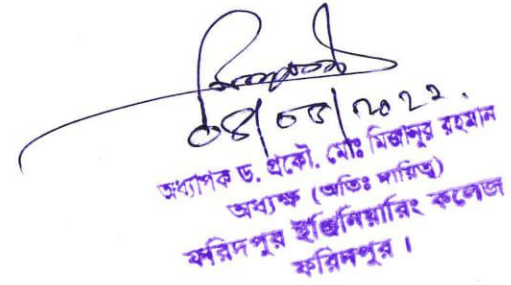 ০৪/০৮/২০২২.
অধ্যাপক ড. প্রকৌ. মোঃ মিজানুর রহমান
অধ্যক্ষ (অতিঃ দায়িত্ব)
ফরিদপুর ইঞ্জিনিয়ারিং কলেজ
ফরিদপুর।